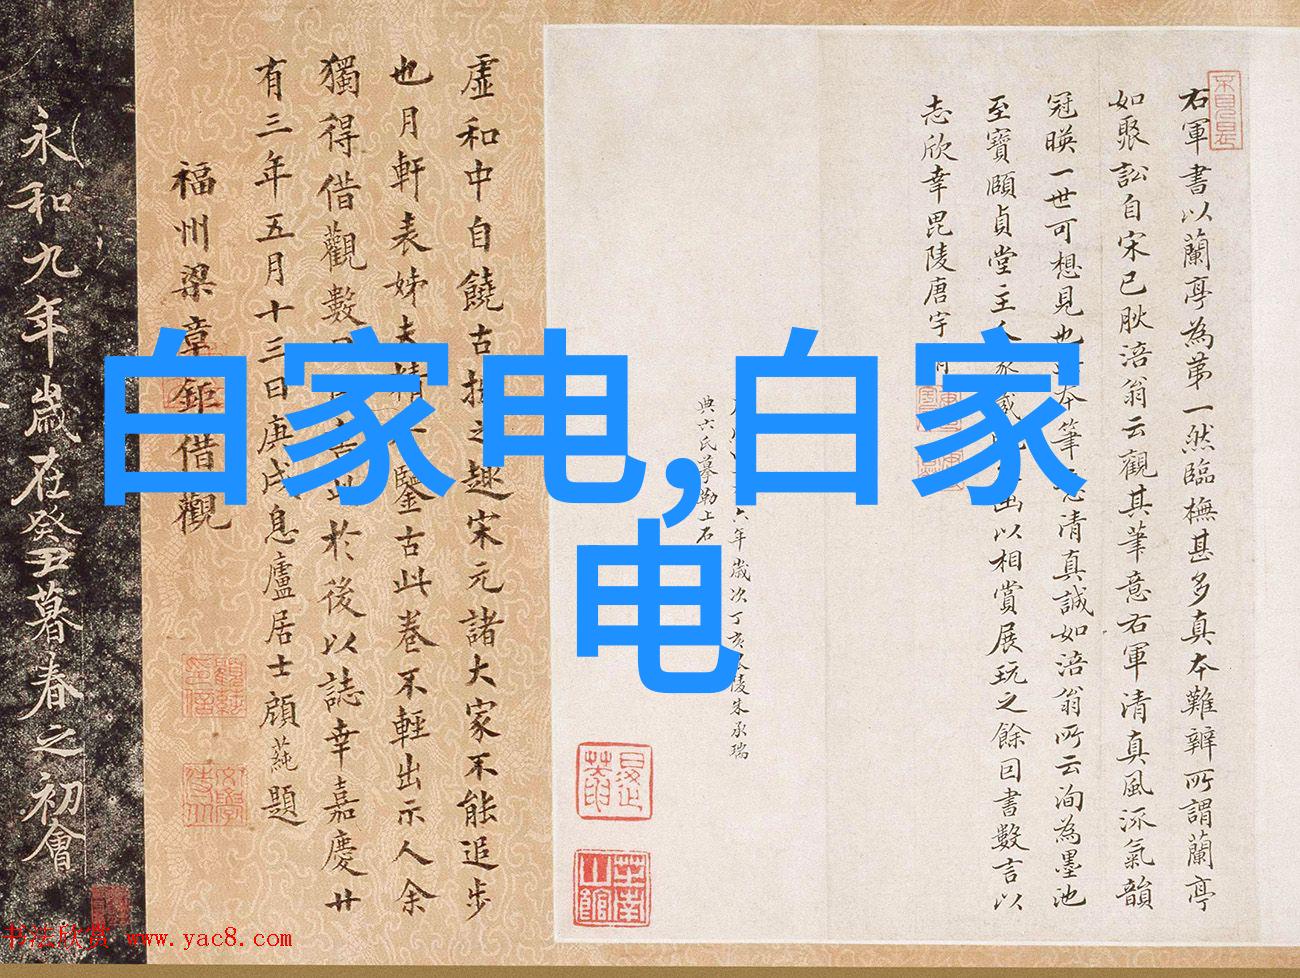 白家电,白家
电
右軍書以蘭亭為第一然臨橅甚多真本難辨所謂蘭亭
如聚訟自宋已肰涪翁云觀其筆意右軍清真風流氣韻
冠暎一世可想見也本筆清真誠如涪翁所云洵為墨池
至寶頤貞堂主以相賞展玩之餘因書數言以
志欣幸毘陵唐宇
六年歲次丁亥陵朱承瑞
典六氏摹勒上石
虛和中自饒古拙之趣宋元諸大家不能追步
也月軒表姊夫精鑒古此卷不輕出示人余
獨得借觀數於後以誌幸嘉慶廿
有三年五月十三日庚戌息廬居士顧蒓題
福州梁章鉅借觀
永和九年歲在癸丑暮春之初會
书法欣赏 www.yac8.com